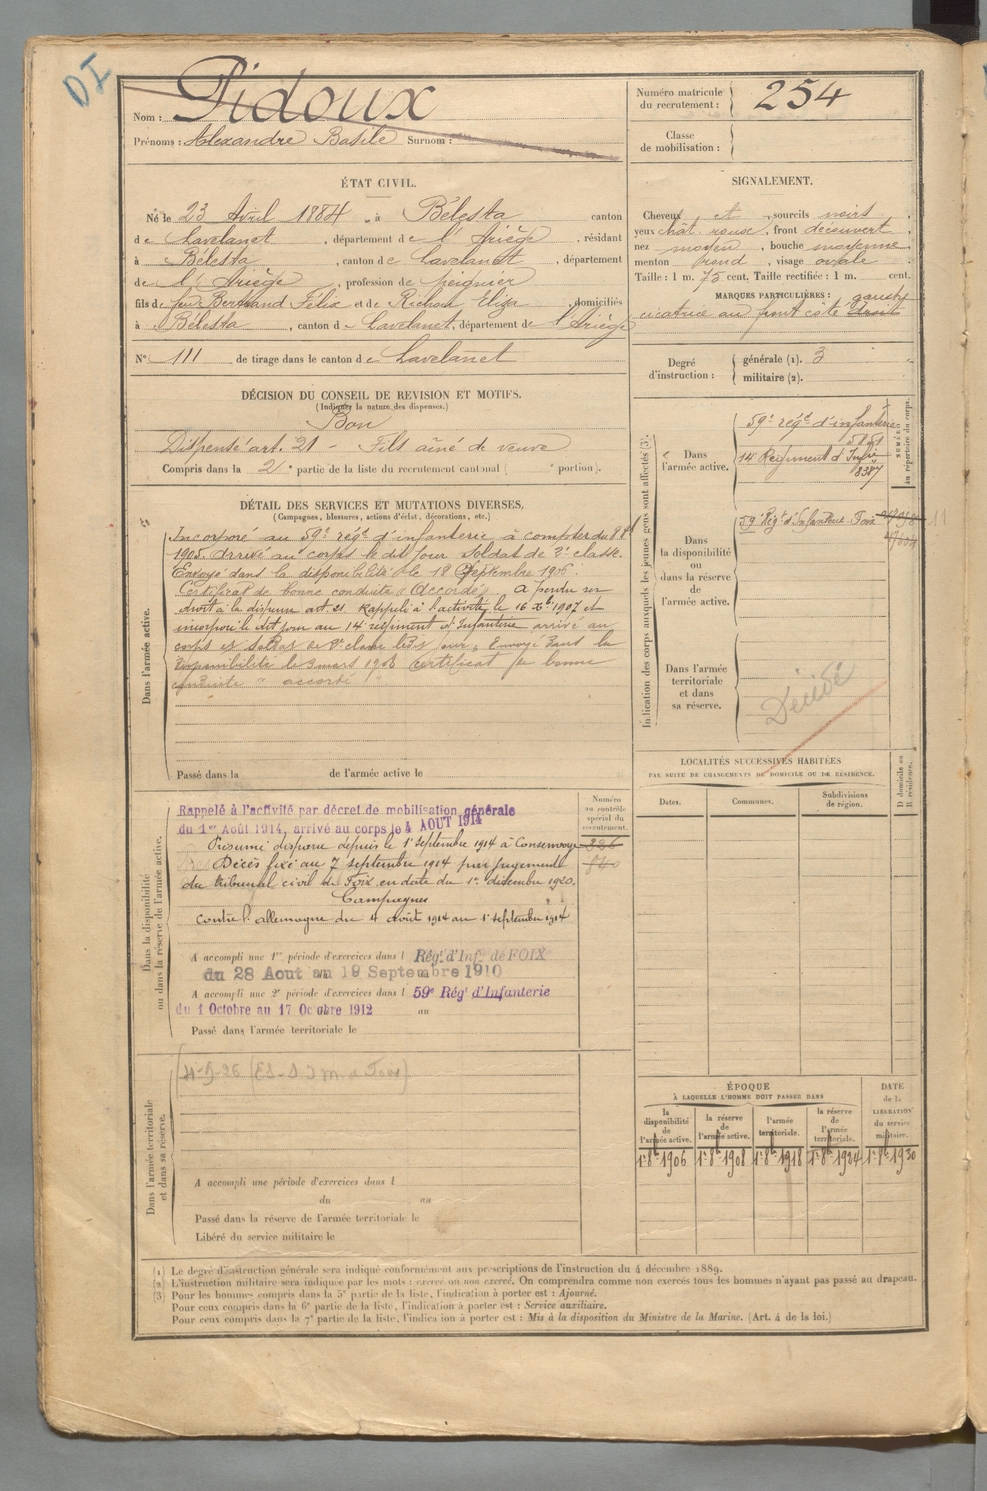 DI
Nom : Pidoux
Prénoms : Alexandre Basile Surnom :
Numéro matricule du recrutement : 254
Classe de mobilisation :
ÉTAT CIVIL.
Né le 23 Avril 1884, à Bélesta canton
de Lavelanet, département de l'Ariège, résidant
à Bélesta, canton de Lavelanet, département
de l'Ariège, profession de peignier
fils de feu Bertrand Félix et de Eliza, domiciliés
à Bélesta, canton de Lavelanet, département de l'Ariège
N° 111 de tirage dans le canton de Lavelanet
SIGNALEMENT.
Cheveux et sourcils noirs,
yeux chât. roux, front découvert,
nez moyen, bouche moyenne,
menton rond, visage ovale
Taille : 1 m. 75 cent. Taille rectifiée : 1 m. cent.
MARQUES PARTICULIÈRES : gauche
cicatrice au front côté droit
Degré d'instruction : générale (1). 3
militaire (2).
DÉCISION DU CONSEIL DE REVISION ET MOTIFS.
(Indiquer la nature des dispenses.)
Bon
Dispensé art. 21 - Fils aîné de veuve
Compris dans la 2e partie de la liste du recrutement cantonal ( e portion).
DÉTAIL DES SERVICES ET MUTATIONS DIVERSES.
(Campagnes, blessures, actions d'éclat, décorations, etc.)
Dans l'armée active.
Incorporé au 59e régt d'infanterie à compter du 8 8bre
1905. Arrivé au corps le dit jour Soldat de 2e classe.
Envoyé dans la disponibilité le 18 Septembre 1906.
Certificat de bonne conduite "Accordé" A perdu son
droit à la dispense art. 21 Rappelé à l'activité le 16 Xbre 1907 et
incorporé le dit jour au 14e régiment d'Infanterie arrivé au
corps et soldat de 2e classe le dit jour, Envoyé dans la
disponibilité le 3 mars 1908 certificat de bonne
conduite " accordé "
Passé dans la de l'armée active le
Indication des corps auxquels les jeunes gens sont affectés (3).
NUMÉRO au répertoire du corps.
Dans l'armée active.
59e régt d'infanterie
5851
14e Régiment d'Infie
8387
Dans la disponibilité ou dans la réserve de l'armée active.
59e Régt d'Infanterie Foix
Dans l'armée territoriale et dans sa réserve.
Décédé
LOCALITÉS SUCCESSIVES HABITÉES
PAR SUITE DE CHANGEMENTS DE DOMICILE OU DE RÉSIDENCE.
D domicile ou R résidence.
Dates. Communes. Subdivisions de région.
Numéro au contrôle spécial du recrutement.
Dans la disponibilité ou dans la réserve de l'armée active.
Rappelé à l'activité par décret de mobilisation générale
du 1er Août 1914, arrivé au corps le 4 AOUT 1914
Présumé disparu depuis le 1er septembre 1914 à Consenvoye
Décès fixé au 7 septembre 1914 par jugement
du tribunal civil de Foix en date du 1er décembre 1920.
Campagnes
Contre l'allemagne du 4 août 1914 au 1er septembre 1914
A accompli une 1re période d'exercices dans l Régt d'Infie de FOIX
du 28 Aout au 19 Septembre 1910
A accompli une 2e période d'exercices dans l 59e Régt d'Infanterie
du 1 Octobre au 17 Octobre 1912 au
Passé dans l'armée territoriale le
Dans l'armée territoriale et dans sa réserve.
A accompli une période d'exercices dans l
du au
Passé dans la réserve de l'armée territoriale le
Libéré du service militaire le
ÉPOQUE
À LAQUELLE L'HOMME DOIT PASSER DANS
la disponibilité de l'armée active. la réserve de l'armée active. l'armée territoriale. la réserve de l'armée territoriale.
DATE de la LIBÉRATION du service militaire.
1er 8bre 1906 1er 8bre 1908 1er 8bre 1918 1er 8bre 1924 1er 8bre 1930
(1) Le degré d'instruction générale sera indiqué conformément aux prescriptions de l'instruction du 4 décembre 1889.
(2) L'instruction militaire sera indiquée par les mots : exercé ou non exercé. On comprendra comme non exercés tous les hommes n'ayant pas passé au drapeau.
(3) Pour les hommes compris dans la 5e partie de la liste, l'indication à porter est : Ajourné.
Pour ceux compris dans la 6e partie de la liste, l'indication à porter est : Service auxiliaire.
Pour ceux compris dans la 7e partie de la liste, l'indication à porter est : Mis à la disposition du Ministre de la Marine. (Art. 4 de la loi.)